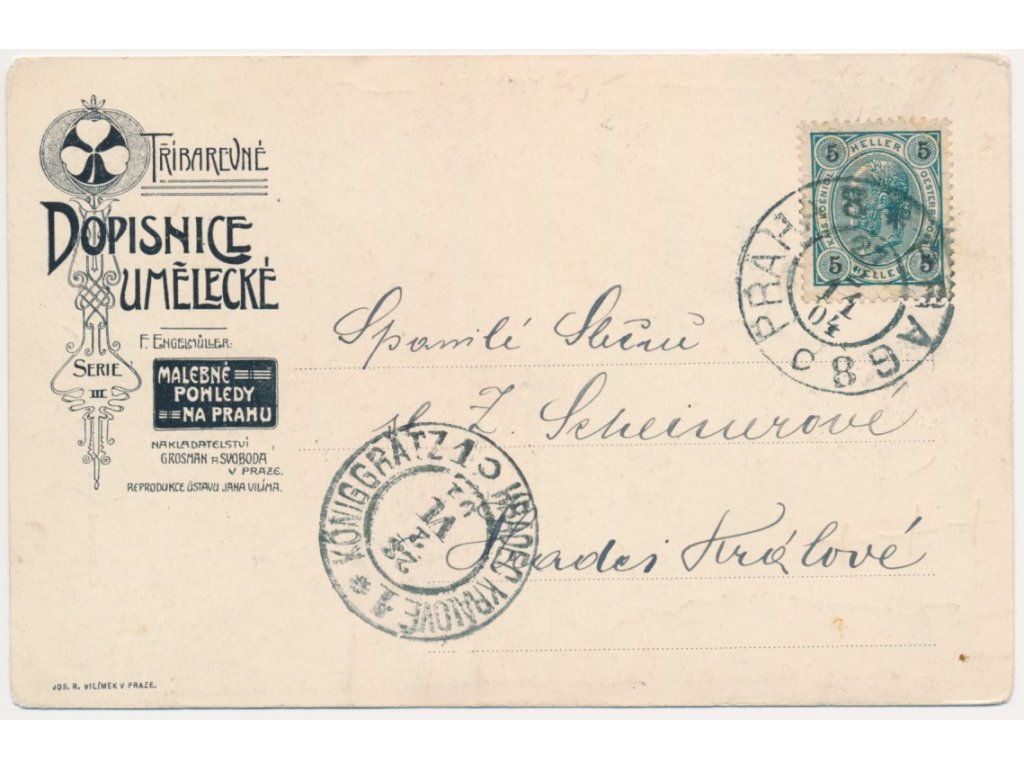 TŘÍBAREVNÉ
DOPISNICE
UMĚLECKÉ
F. ENGELMÜLLER:
SERIE
III
MALEBNÉ
POHLEDY
NA PRAHU
NAKLADATELSTVÍ
GROSMAN A SVOBODA
V PRAZE.
REPRODUKCE ÚSTAVU JANA VILÍMA.
JOS. R. VILÍMEK V PRAZE.
5 HELLER 5
5 HELLER 5
PRAHA
8
04
Spanilé Slečnu
sl. Z. Scheinerové
Hradci Králové
KÖNIGGRÄTZ 1
HRADEC KRÁLOVÉ 1